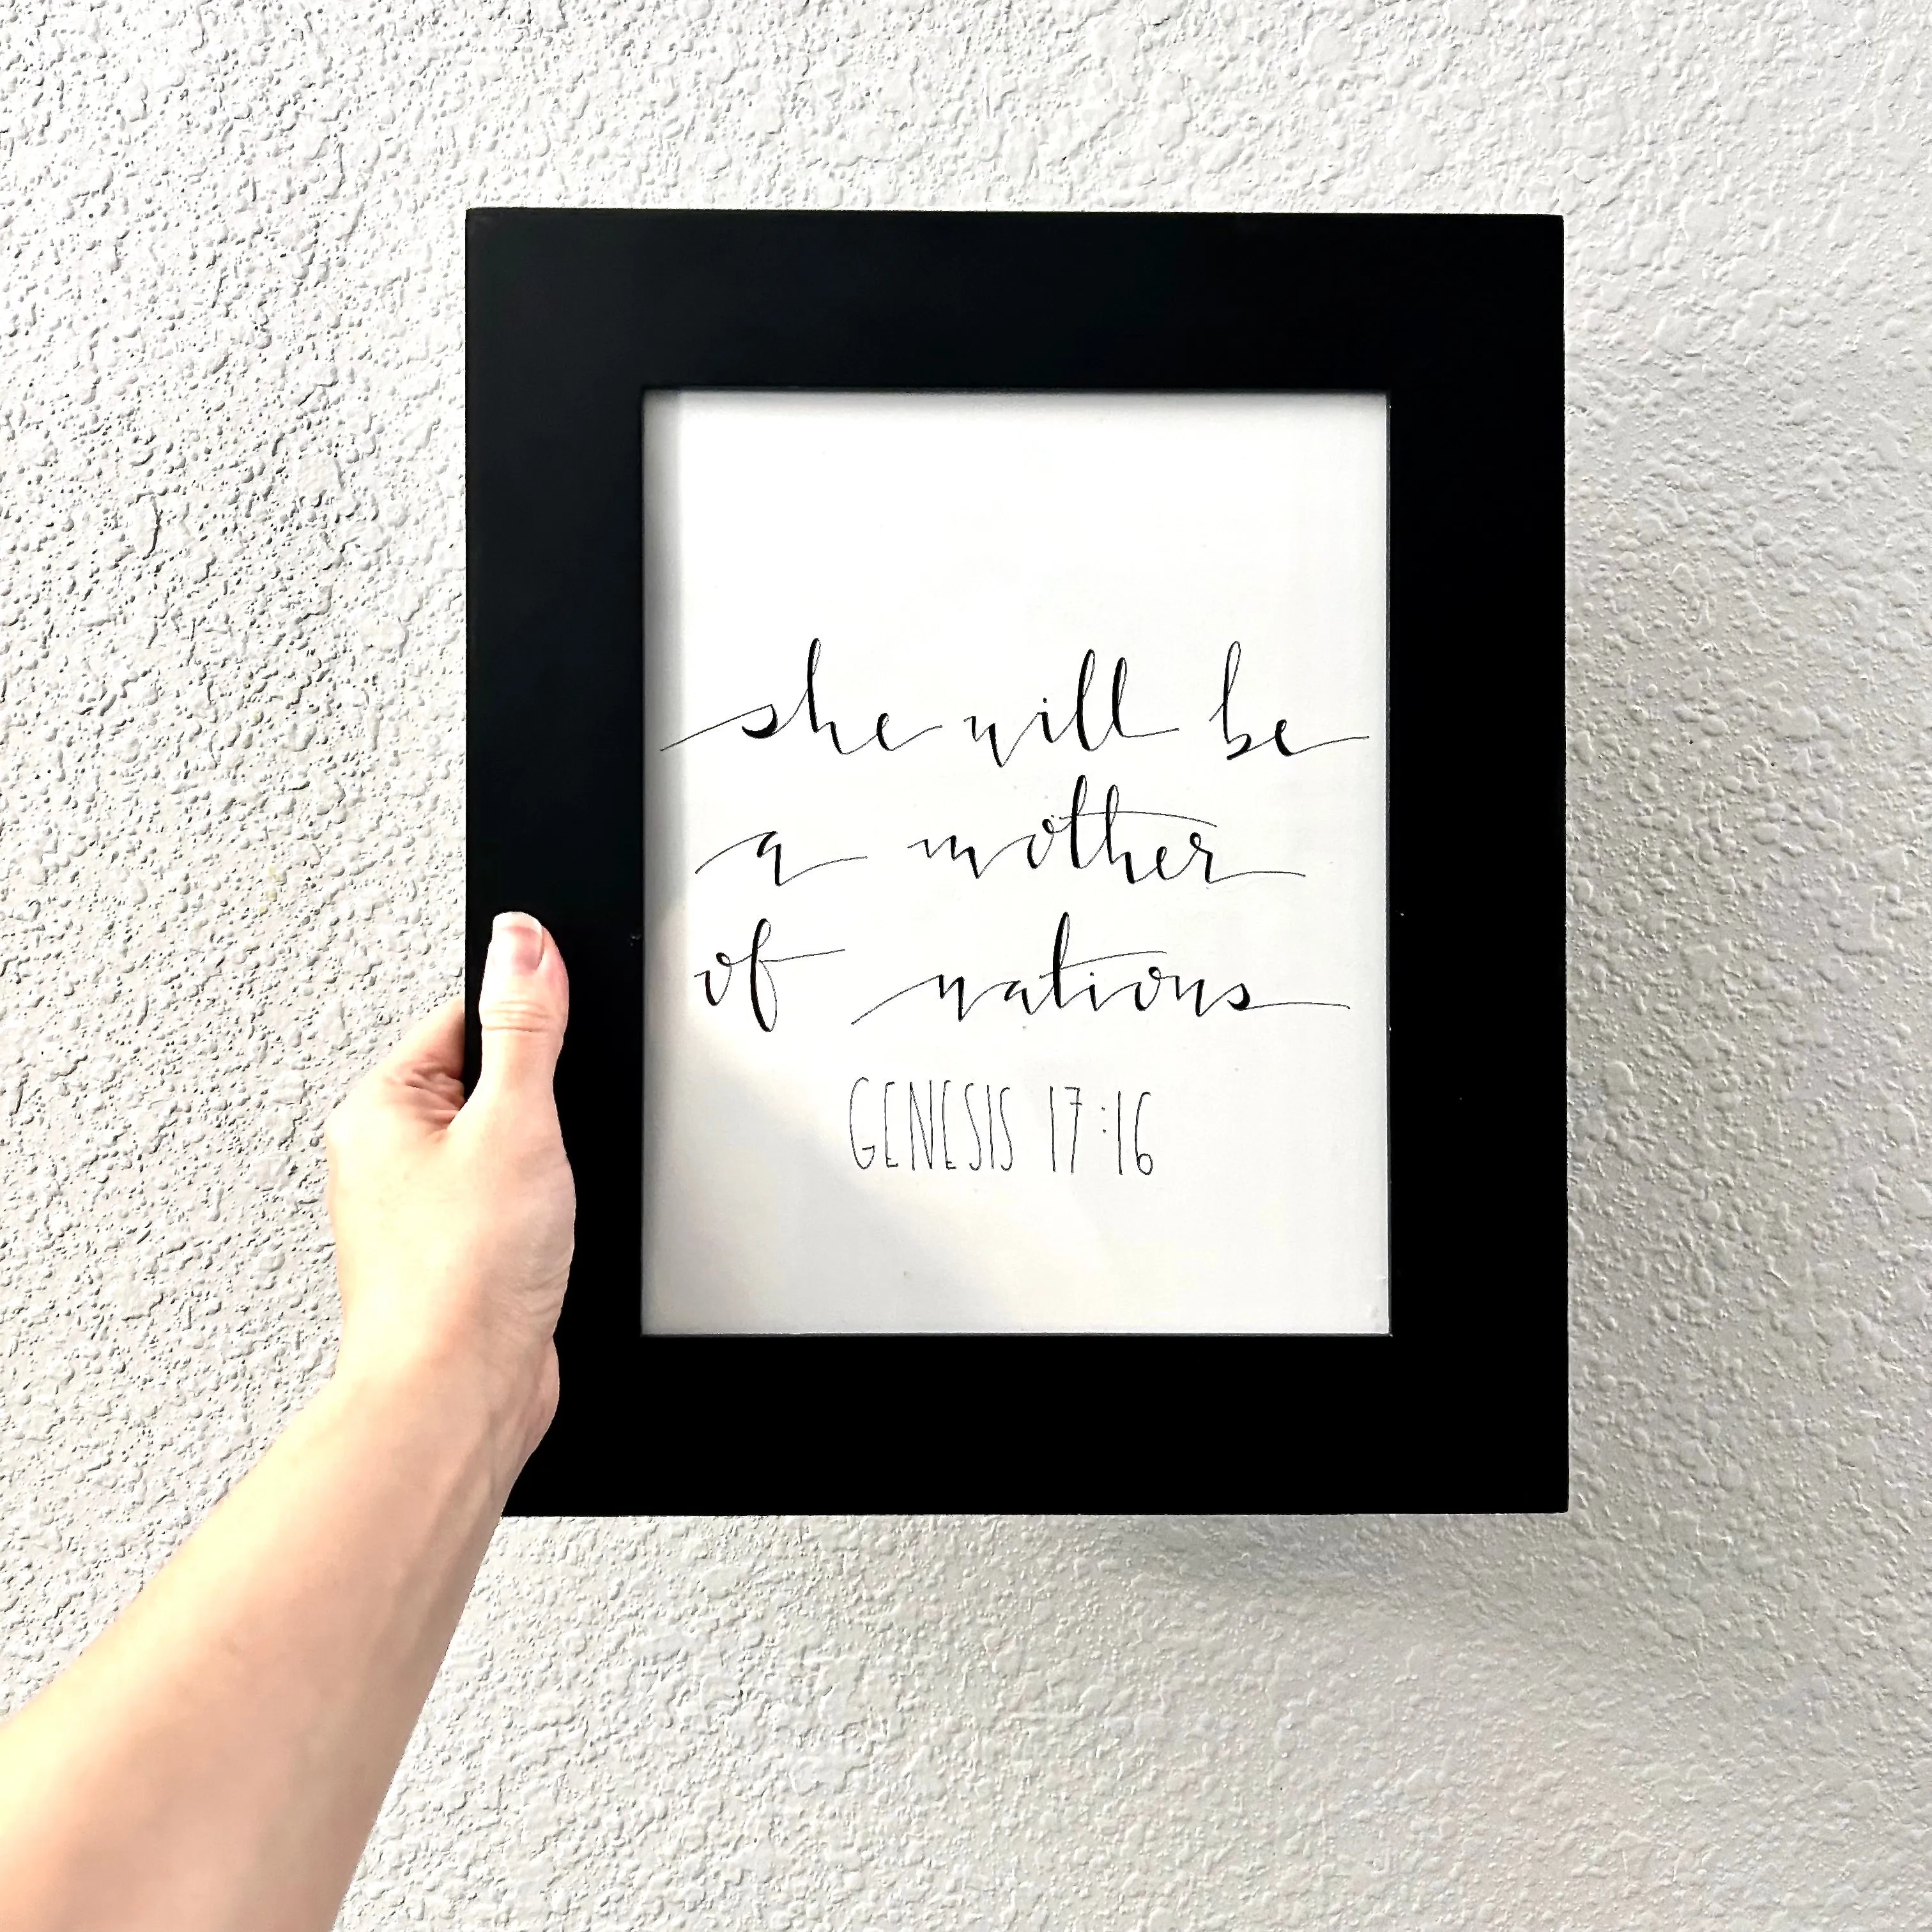 she will be
a mother
of nations
GENESIS 17:16